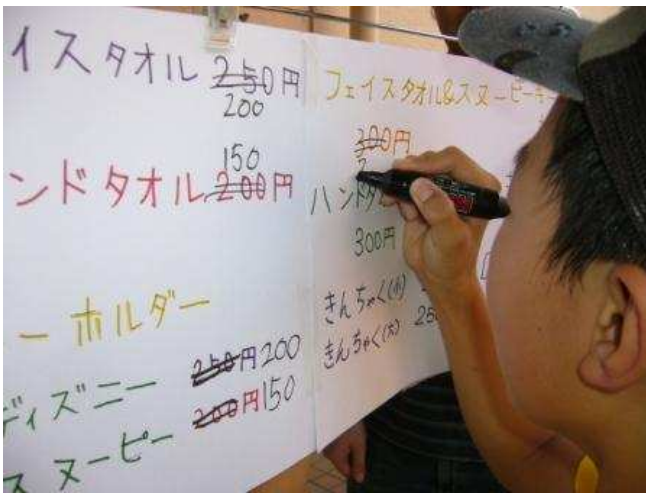 イスタオル 250円
200
150
ンドタオル 200円
ーホルダー
ディズニー 250円 200
スヌーピー 200円 150
フェイスタオル&スヌーピーキー
300円
ハンドタ
300円
きんちゃく(小)
きんちゃく(大) 250